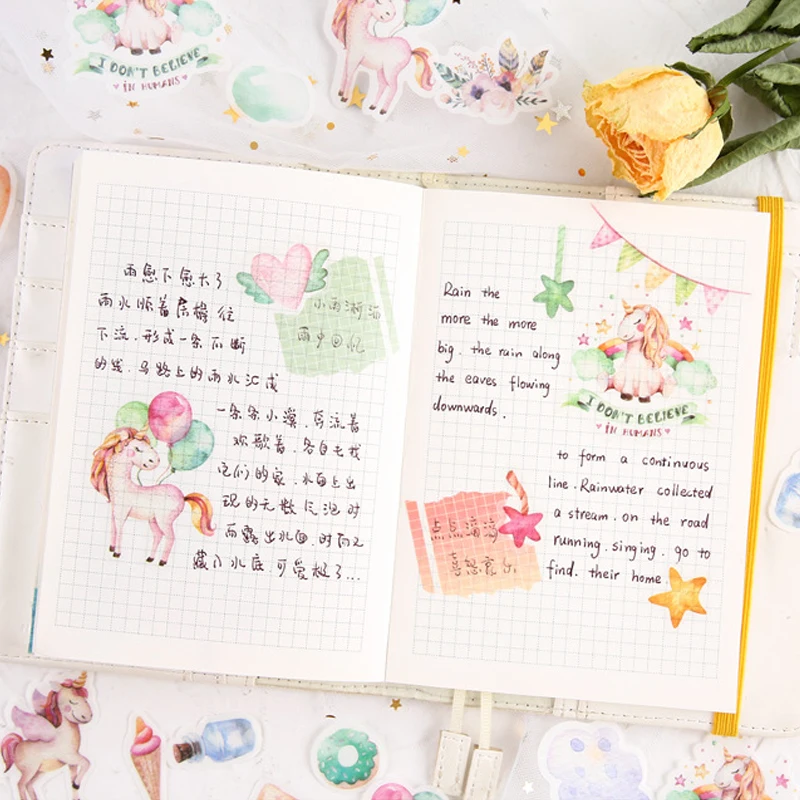 I DON'T BELIEVE
IN HUMANS
雨愈下愈大了
雨水顺着房檐往
下流,形成一条不断
的线.马路上的雨水汇成
一条条小溪,奔流着
欢歌着.各自去找
它们的家.水面上出
现的无数气泡时
而露出水面,时而又
藏入水底 可爱极了...
小雨淅沥
雨中回忆
Rain the
more the more
big. the rain along
the eaves flowing
downwards.
I DON'T BELIEVE
IN HUMANS
to form a continuous
line. Rainwater collected
a stream. on the road
running. singing. go to
find. their home
点点滴滴
喜怒哀乐